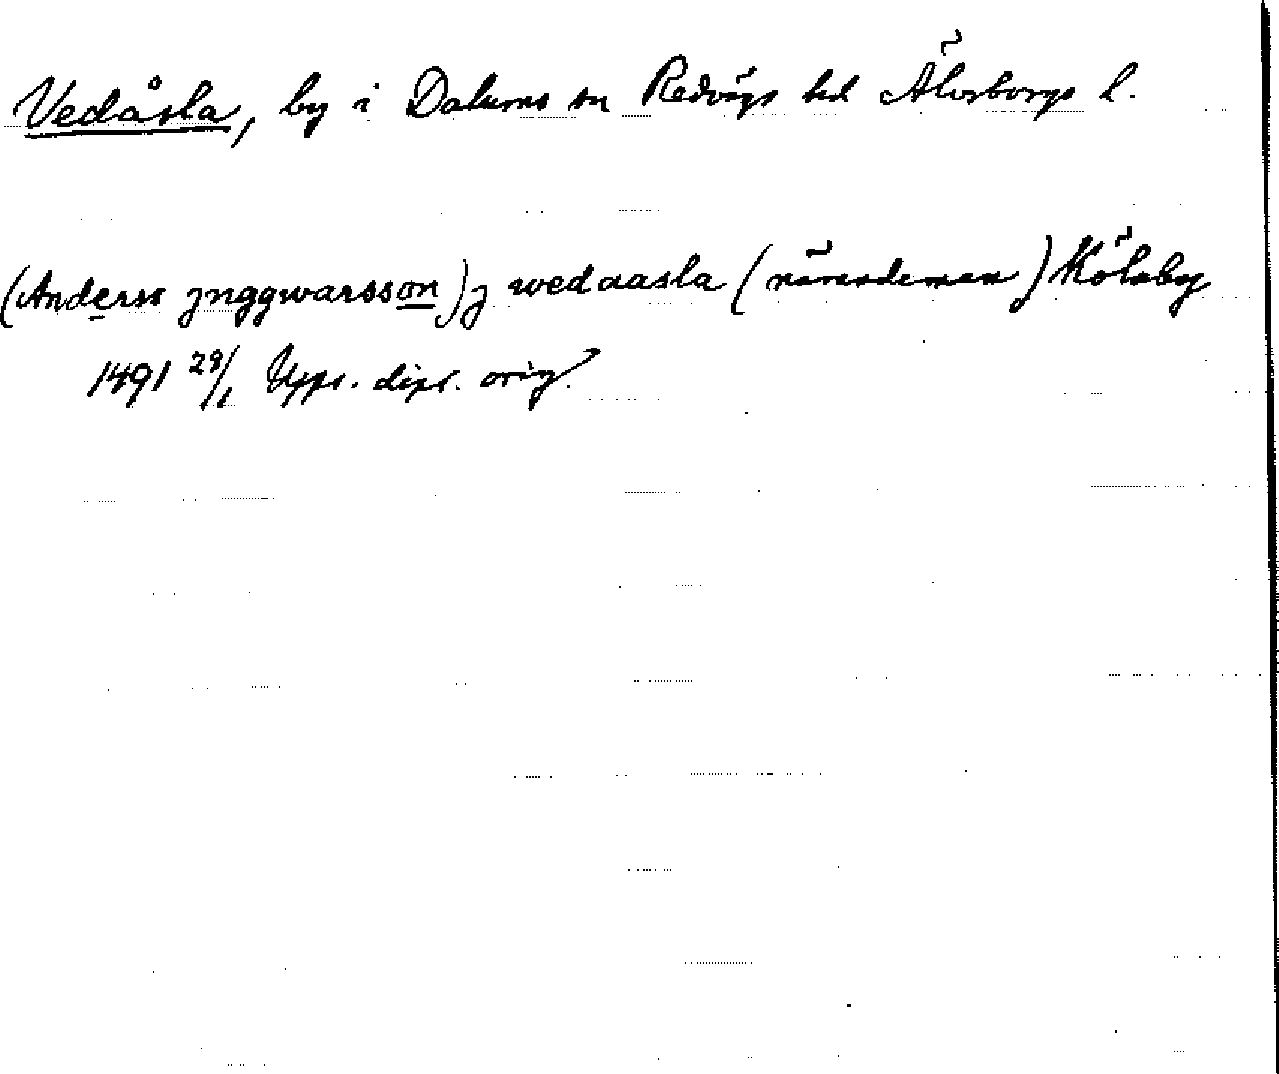 Vedåsla, by i Dalums sn Redvägs hd Älvsborgs l.
(Anderss jnggwarsson) j wedaasla (närandeman) Kölaby
1491 28/1 Upps. dipl. orig.